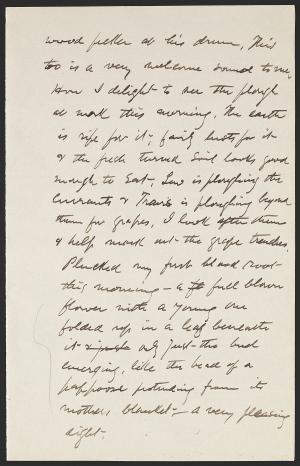 wood pecker at his drum, This
too is a very welcome sound to me,
How I delight to see the plough
at work this morning, The earth
is ripe for it, fairly lusts for it
& the fresh turned soil looks good
enough to eat, Law is ploughing the
currants & Travis is ploughing beyond
them for grapes, I look after them
& help mark out the grape trenches.
Plucked my first blood root
this morning – a full blown
flower with a young one
folded up in a leaf beneath
it only just the bud
emerging, like the head of a
pappoose protruding from its
mothers blanket – a very pleasing
sight.